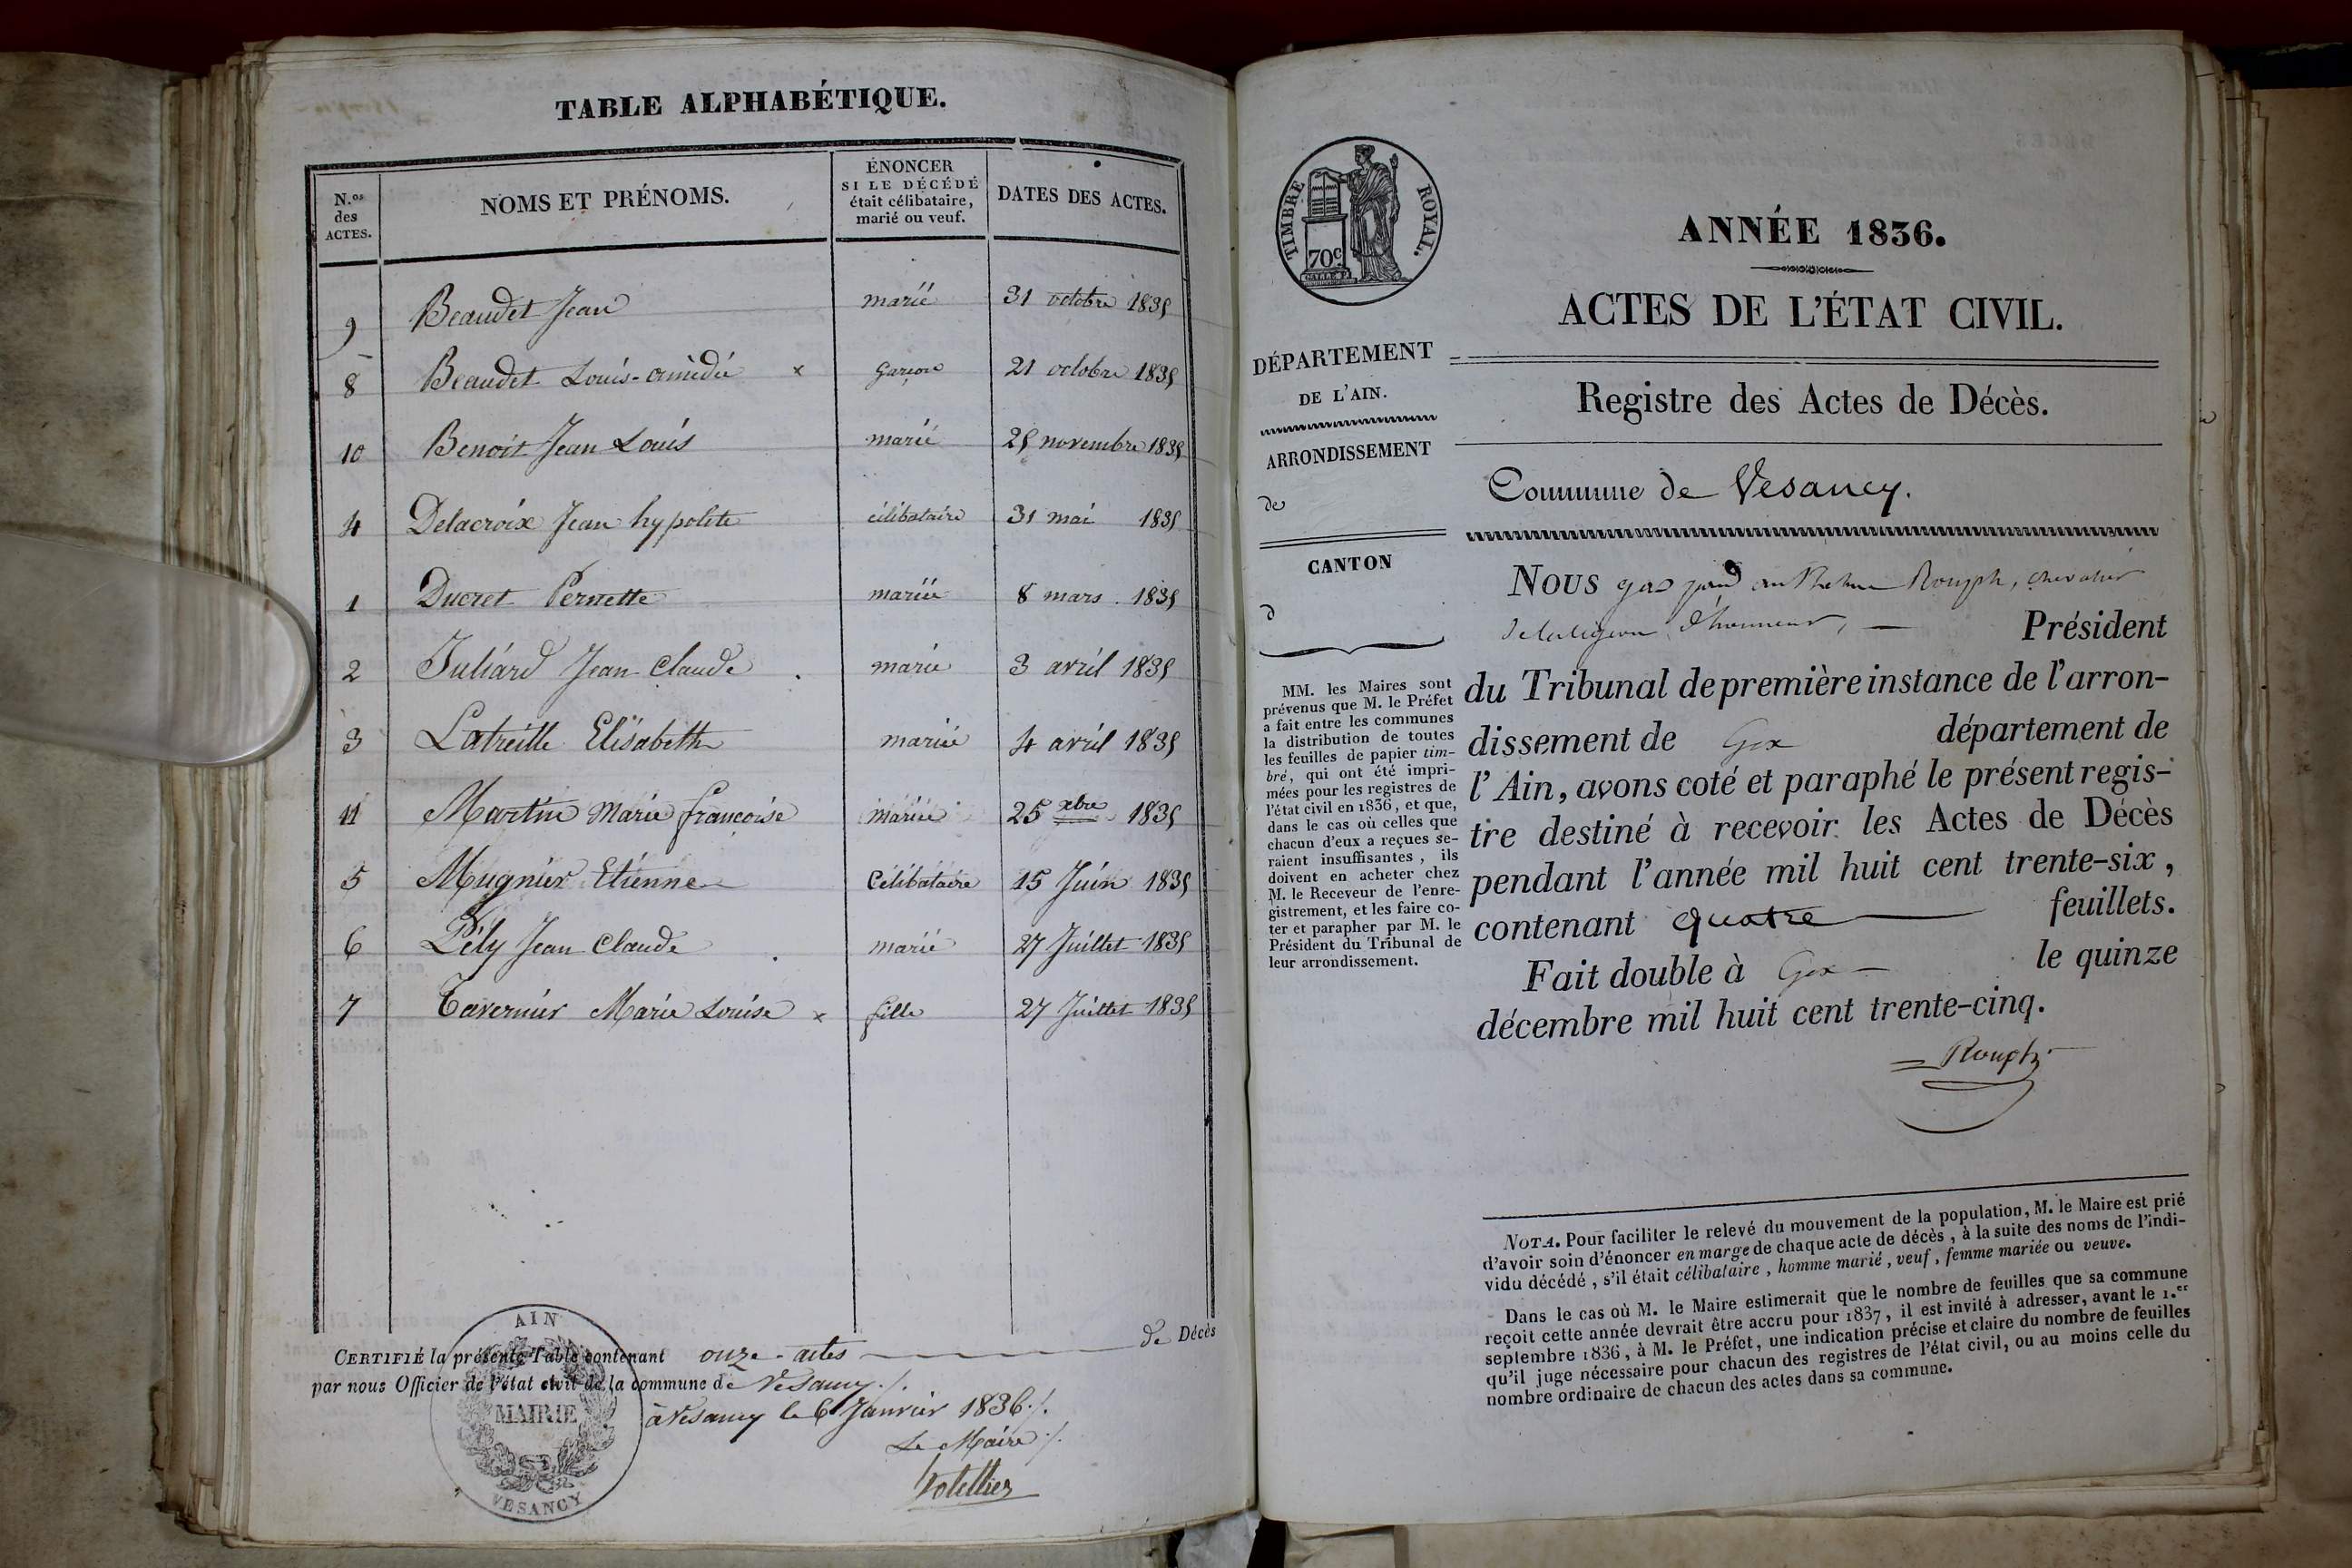 TABLE ALPHABÉTIQUE.
N.os des ACTES.
NOMS ET PRÉNOMS.
ÉNONCER SI LE DÉCÉDÉ était célibataire, marié ou veuf.
DATES DES ACTES.
9 Beaudet Jean marié 31 octobre 1835
8 Beaudet Louis-amédée x garçon 21 octobre 1835
10 Benoit Jean Louis marié 25 novembre 1835
4 Delacroix Jean hypolite célibataire 31 mai 1835
1 Ducret Pernette mariée 8 mars 1835
2 Juliard Jean Claude marié 3 avril 1835
3 Latreille Elisabeth mariée 4 avril 1835
11 Martin Marie françoise mariée 25 xbre 1835
5 Mugnier Etienne Célibataire 15 Juin 1835
6 Pély Jean Claude marié 27 Juillet 1835
7 Tavernier Marie Louise x fille 27 Juillet 1835
CERTIFIÉ la présente Table contenant onze actes de Décès
par nous Officier de l'état civil de la commune de Vesancy ./.
à Vesancy le 6 Janvier 1836 ./.
Le Maire ./.
AIN
MAIRIE
VESANCY
TIMBRE ROYAL.
70c
DÉPARTEMENT
DE L'AIN.
ARRONDISSEMENT
de
CANTON
d
MM. les Maires sont
prévenus que M. le Préfet
a fait entre les communes
la distribution de toutes
les feuilles de papier tim-
bré, qui ont été impri-
mées pour les registres de
l'état civil en 1836, et que,
dans le cas où celles que
chacun d'eux a reçues se-
raient insuffisantes, ils
doivent en acheter chez
M. le Receveur de l'enre-
gistrement, et les faire co-
ter et parapher par M. le
Président du Tribunal de
leur arrondissement.
ANNÉE 1836.
ACTES DE L'ÉTAT CIVIL.
Registre des Actes de Décès.
Commune de Vesancy.
NOUS Rouph, chevalier
de la légion d'honneur, — Président
du Tribunal de première instance de l'arron-
dissement de Gex département de
l'Ain, avons coté et paraphé le présent regis-
tre destiné à recevoir les Actes de Décès
pendant l'année mil huit cent trente-six,
contenant quatre feuillets.
Fait double à Gex — le quinze
décembre mil huit cent trente-cinq.
Rouph
NOTA. Pour faciliter le relevé du mouvement de la population, M. le Maire est prié
d'avoir soin d'énoncer en marge de chaque acte de décès, à la suite des noms de l'indi-
vidu décédé, s'il était célibataire, homme marié, veuf, femme mariée ou veuve.
Dans le cas où M. le Maire estimerait que le nombre de feuilles que sa commune
reçoit cette année devrait être accru pour 1837, il est invité à adresser, avant le 1.er
septembre 1836, à M. le Préfet, une indication précise et claire du nombre de feuilles
qu'il juge nécessaire pour chacun des registres de l'état civil, ou au moins celle du
nombre ordinaire de chacun des actes dans sa commune.